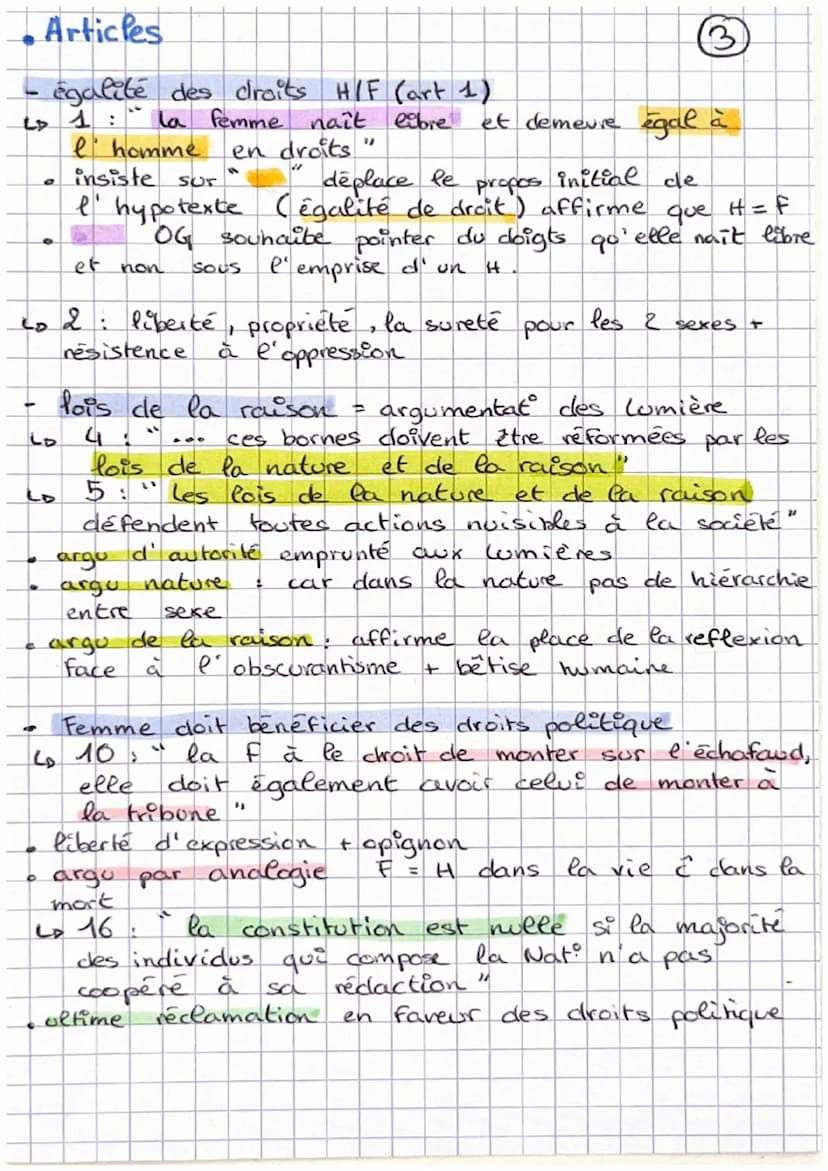 • Articles
3
- égalité des droits H/F (art 1)
↳ 1 : " la femme naît libre et demeure égal à
l'homme en droits "
• insiste sur " " déplace le propos initial de
l'hypotexte (égalité de droit) affirme que H = F
• OG souhaite pointer du doigts qu'elle naît libre
et non sous l'emprise d'un H.
↳ 2 : liberté, propriété, la sureté pour les 2 sexes +
résistence à l'oppression
- lois de la raison = argumentat° des lumière
↳ 4 : " ... ces bornes doivent être réformées par les
lois de la nature et de la raison "
↳ 5 : " les lois de la nature et de la raison
défendent toutes actions nuisibles à la société "
• argu d'autorité emprunté aux lumières
• argu nature : car dans la nature pas de hiérarchie
entre sexe
• argu de la raison : affirme la place de la reflexion
face à l'obscurantisme + bêtise humaine
- Femme doit bénéficier des droits politique
↳ 10 : " la F à le droit de monter sur l'échafaud,
elle doit également avoir celui de monter à
la tribune "
• liberté d'expression + opignon
• argu par analogie F = H dans la vie ĉ dans la
mort
↳ 16 : " la constitution est nulle si la majorité
des individus qui compose la Nat° n'a pas
coopéré à sa rédaction "
• ultime réclamation en faveur des droits politique